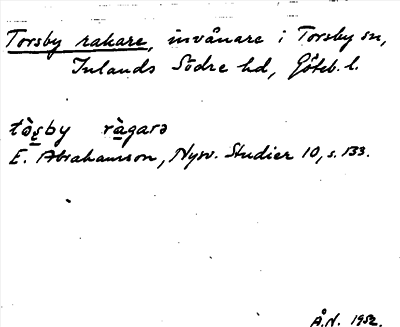 Torsby rakare, invånare i Torsby sn,
Inlands Södre hd, Göteb. l.
tò̤s̤by ràgarə
E. Abrahamson, Nysv. Studier 10, s. 133.
Å.N. 1952.